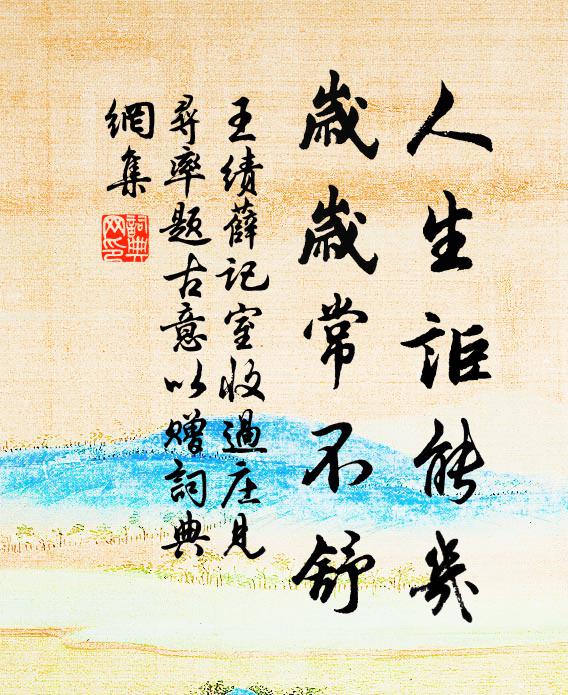 人生詎能幾
歲歲常不舒
王績薛記室收過庄見
尋率題古意以贈詞典
網集
詞典網印